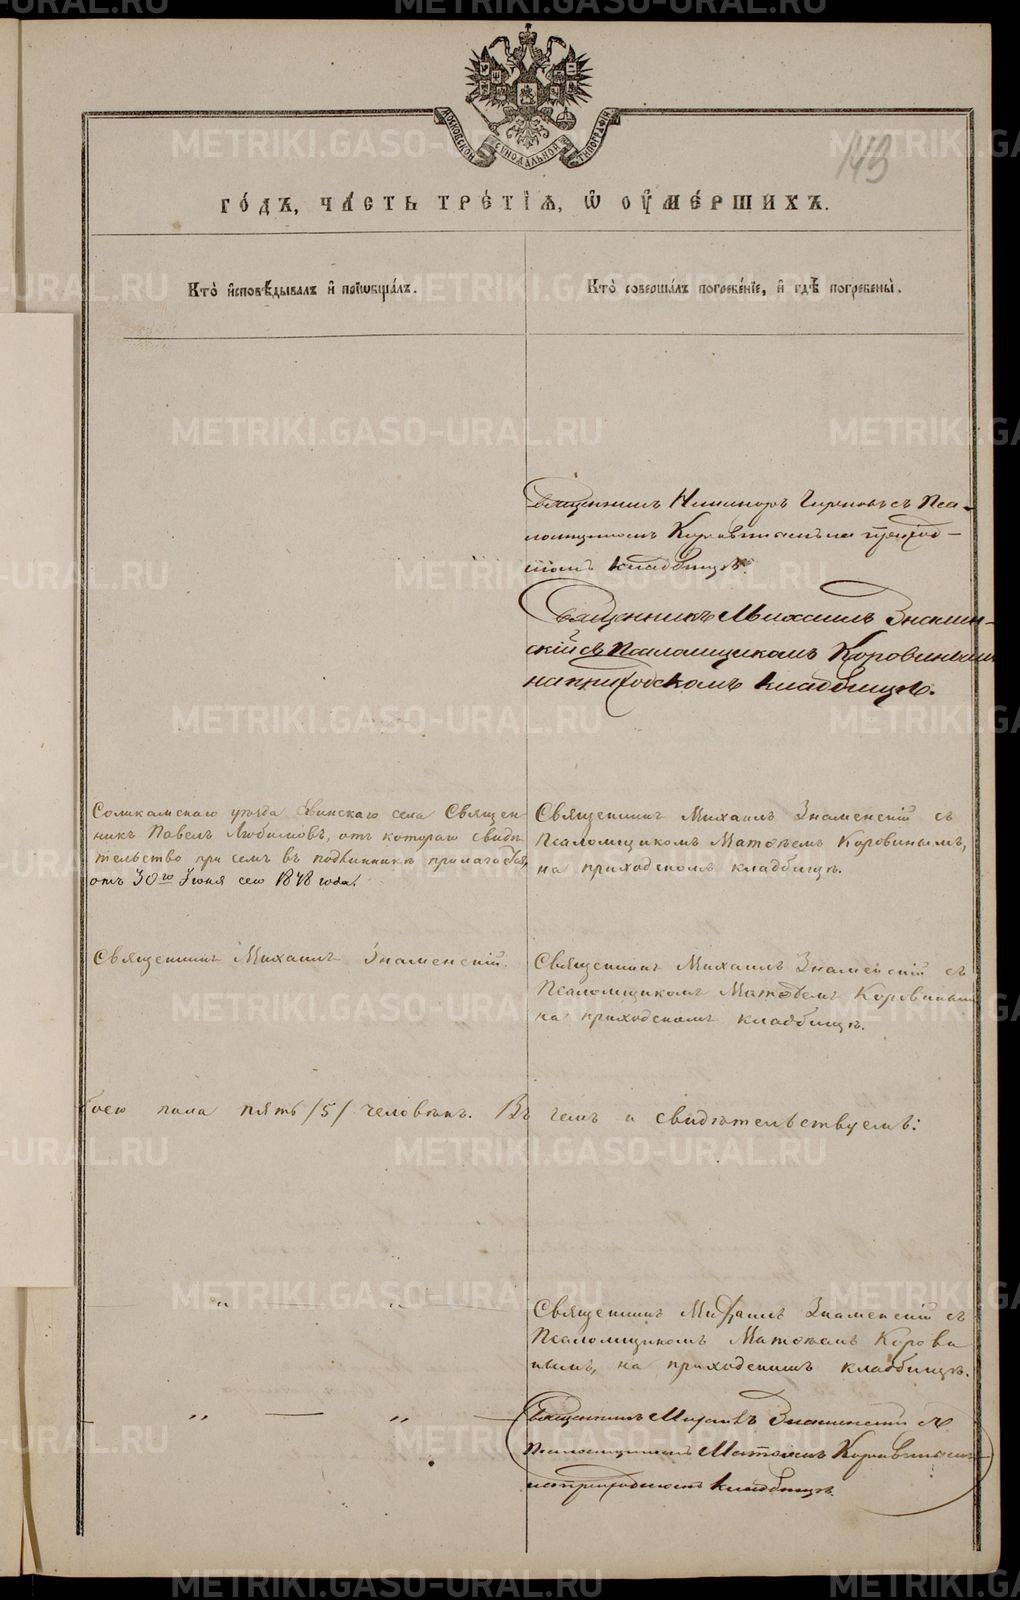 МОСКОВСКОЙ СѴНОДАЛЬНОЙ ТИПОГРАФІИ
143
ГО́ДЪ, ЧА́СТЬ ТРЕ́ТІѦ, Ѿ ОУ҆МЕ́РШИХЪ.
Кто̀ и҆сповѣ́дывалъ и҆ прїѡбща́лъ.
Кто̀ соверша́лъ погребе́нїе, и҆ гдѣ̀ погребены̀.
Священникъ Никаноръ с Псаломщикомъ Коровинымъ на приходскомъ кладбищѣ.
Священникъ Михаилъ Знамен-
скій съ Псаломщикомъ Коровинымъ
на приходскомъ кладбищѣ.
Соликамскаго уѣзда села Священ
никъ Павелъ Любимовъ, отъ котораго свидѣ
тельство при семъ въ подлинникѣ прилагается,
отъ 30го Іюня сего 1878 года.
Священникъ Михаилъ Знаменскій съ
Псаломщикомъ Матѳѣемъ Коровинымъ,
на приходскомъ кладбищѣ.
Священникъ Михаилъ Знаменскій.
Священникъ Михаилъ Знаменскій съ
Псаломщикомъ Матѳѣемъ Коровинымъ
на приходскомъ кладбищѣ.
боего пола пять /5/ человѣкъ. Въ чемъ и свидѣтельствуемъ:
„ — „
Священникъ Михаилъ Знаменскій съ
Псаломщикомъ Матѳѣемъ Корови
нымъ, на приходскомъ кладбищѣ.
— „ — „ —
Священникъ Михаилъ Знаменскій съ
Псаломщикомъ Матѳѣемъ Коровинымъ
на приходскомъ кладбищѣ.
METRIKI.GASO-URAL.RU